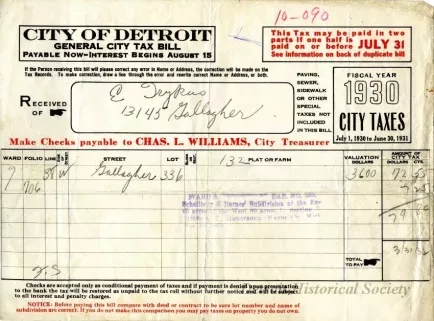 10-090
CITY OF DETROIT
GENERAL CITY TAX BILL
PAYABLE NOW-INTEREST BEGINS AUGUST 15
This Tax may be paid in two
parts if one half is
paid on or before JULY 31
See information on back of duplicate bill
If the Person receiving this bill will please correct any error in Name or Address, the correction will be made on the
Tax Records. To make correction, draw a line through the error and rewrite correct Name or Address, or both.
RECEIVED
OF
13145 Gallagher
PAVING,
SEWER,
SIDEWALK
OR OTHER
SPECIAL
TAXES NOT
INCLUDED
IN THIS BILL
FISCAL YEAR
1930
CITY TAXES
July 1, 1930 to June 30, 1931
Make Checks payable to CHAS. L. WILLIAMS, City Treasurer
WARD FOLIO LINE STREET LOT 132 PLAT OR FARM VALUATION DOLLARS AMOUNT OF CITY TAX DOLLARS CTS.
9 88 W Gallagher 336 3600 72
706
WARD 9
Subdivision of the
TOTAL
TO PAY
3/31/31
Checks are accepted only as conditional payment of taxes and if payment is denied upon presentation
to the bank the tax will be restored as unpaid to the tax roll without further notice and will be subject
to all interest and penalty charges.
Historical Society
NOTICE: Before paying this bill compare with deed or contract to be sure lot number and name of
subdivision are correct. If you do not make this comparison you may pay taxes on property you do not own.